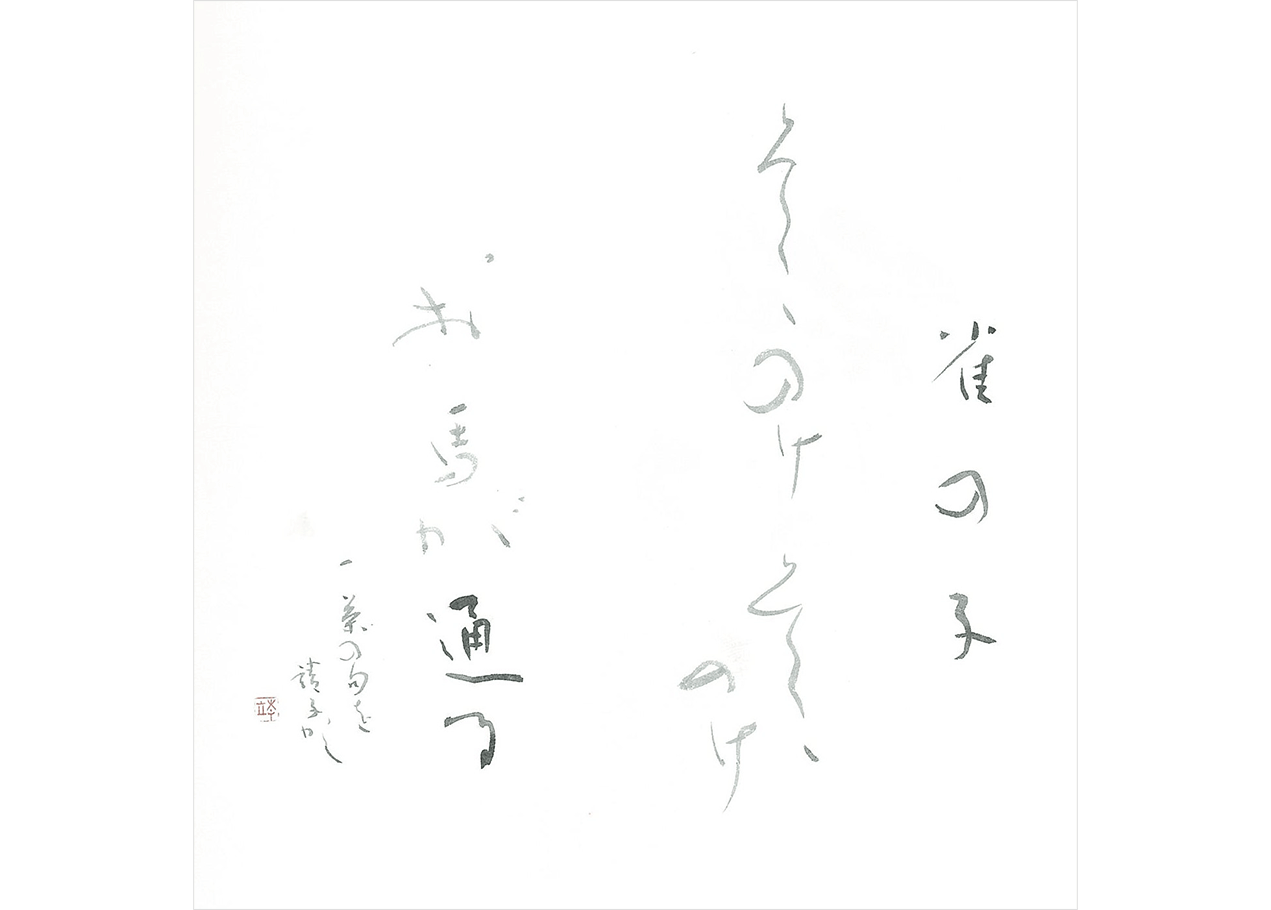 雀の子
そこのけそこ
のけ
お馬が通る
一茶の句を
子かく